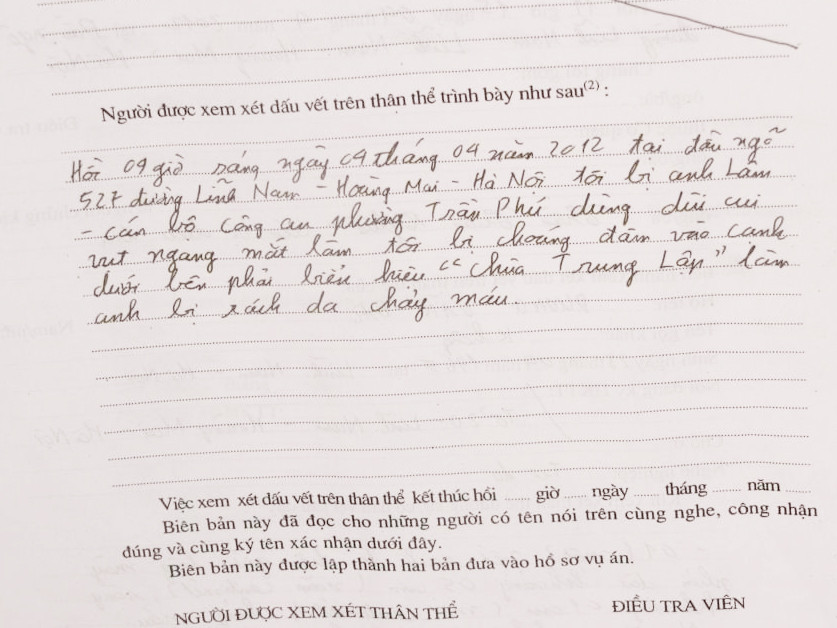 Người được xem xét dấu vết trên thân thể trình bày như sau(2) :
Hồi 09 giờ sáng ngày 09 tháng 04 năm 2012 tại đầu ngõ
527 đường Lĩnh Nam - Hoàng Mai - Hà Nội tôi bị anh Lâm
- cán bộ công an phường Trần Phú dùng dùi cui
vụt ngang mắt làm tôi bị choáng đâm vào cạnh
dưới bên phải biển hiệu "Chùa Trung Lập" làm
anh bị rách da chảy máu.
Việc xem xét dấu vết trên thân thể kết thúc hồi ...... giờ ...... ngày ....... tháng ........ năm .......
Biên bản này đã đọc cho những người có tên nói trên cùng nghe, công nhận
đúng và cùng ký tên xác nhận dưới đây.
Biên bản này được lập thành hai bản đưa vào hồ sơ vụ án.
NGƯỜI ĐƯỢC XEM XÉT THÂN THỂ ĐIỀU TRA VIÊN